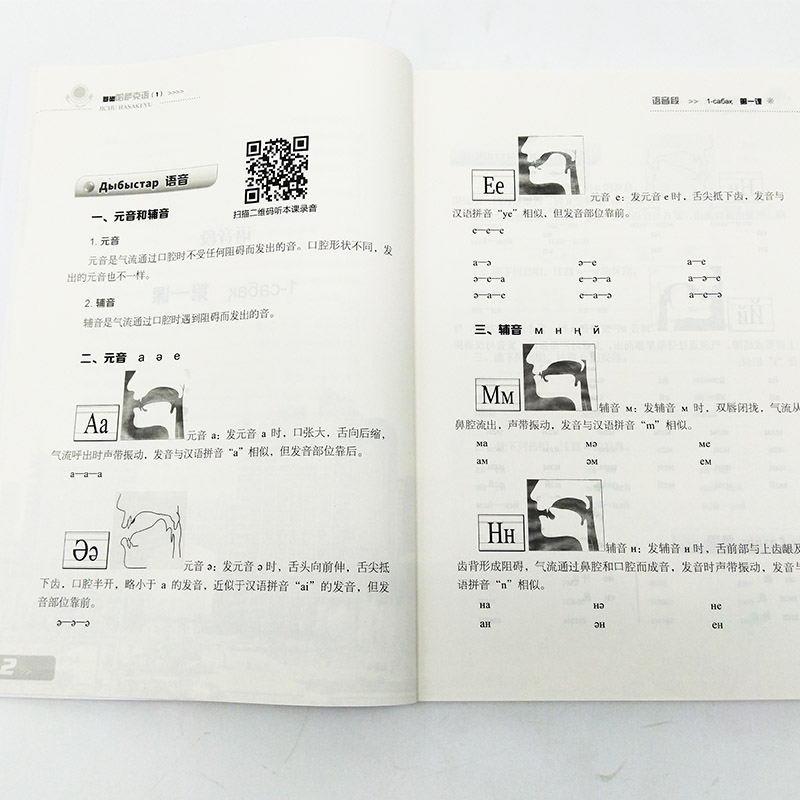 基础哈萨克语（1）>>>>
JICHU HASAKEYU
Дыбыстар 语音
扫描二维码听本课录音
一、元音和辅音
1. 元音
元音是气流通过口腔时不受任何阻碍而发出的音。口腔形状不同，发
出的元音也不一样。
2. 辅音
辅音是气流通过口腔时遇到阻碍而发出的音。
二、元音 а ə е
Аа
元音 а：发元音 а 时，口张大，舌向后缩，
气流呼出时声带振动，发音与汉语拼音“a”相似，但发音部位靠后。
а—а—а
Әә
元音 ә：发元音 ә 时，舌头向前伸，舌尖抵
下齿，口腔半开，略小于 а 的发音，近似于汉语拼音“ai”的发音，但发
音部位靠前。
ә—ә—ә
2
语音段 >> 1-сабақ 第一课
Ее
元音 е：发元音 е 时，舌尖抵下齿，发音与
汉语拼音“ye”相似，但发音部位靠前。
е—е—е
а—ә ә—е а—е
ә—е—а е—ә—а а—ә—е
ә—а—е е—а—ә а—е—ә
三、辅音 м н ң й
Мм
辅音 м：发辅音 м 时，双唇闭拢，气流从
鼻腔流出，声带振动，发音与汉语拼音“m”相似。
ма мә ме
ам әм ем
Нн
辅音 н：发辅音 н 时，舌前部与上齿龈及
齿背形成阻碍，气流通过鼻腔和口腔而成音，发音时声带振动，发音与
语拼音“n”相似。
на нә не
ан ән ен